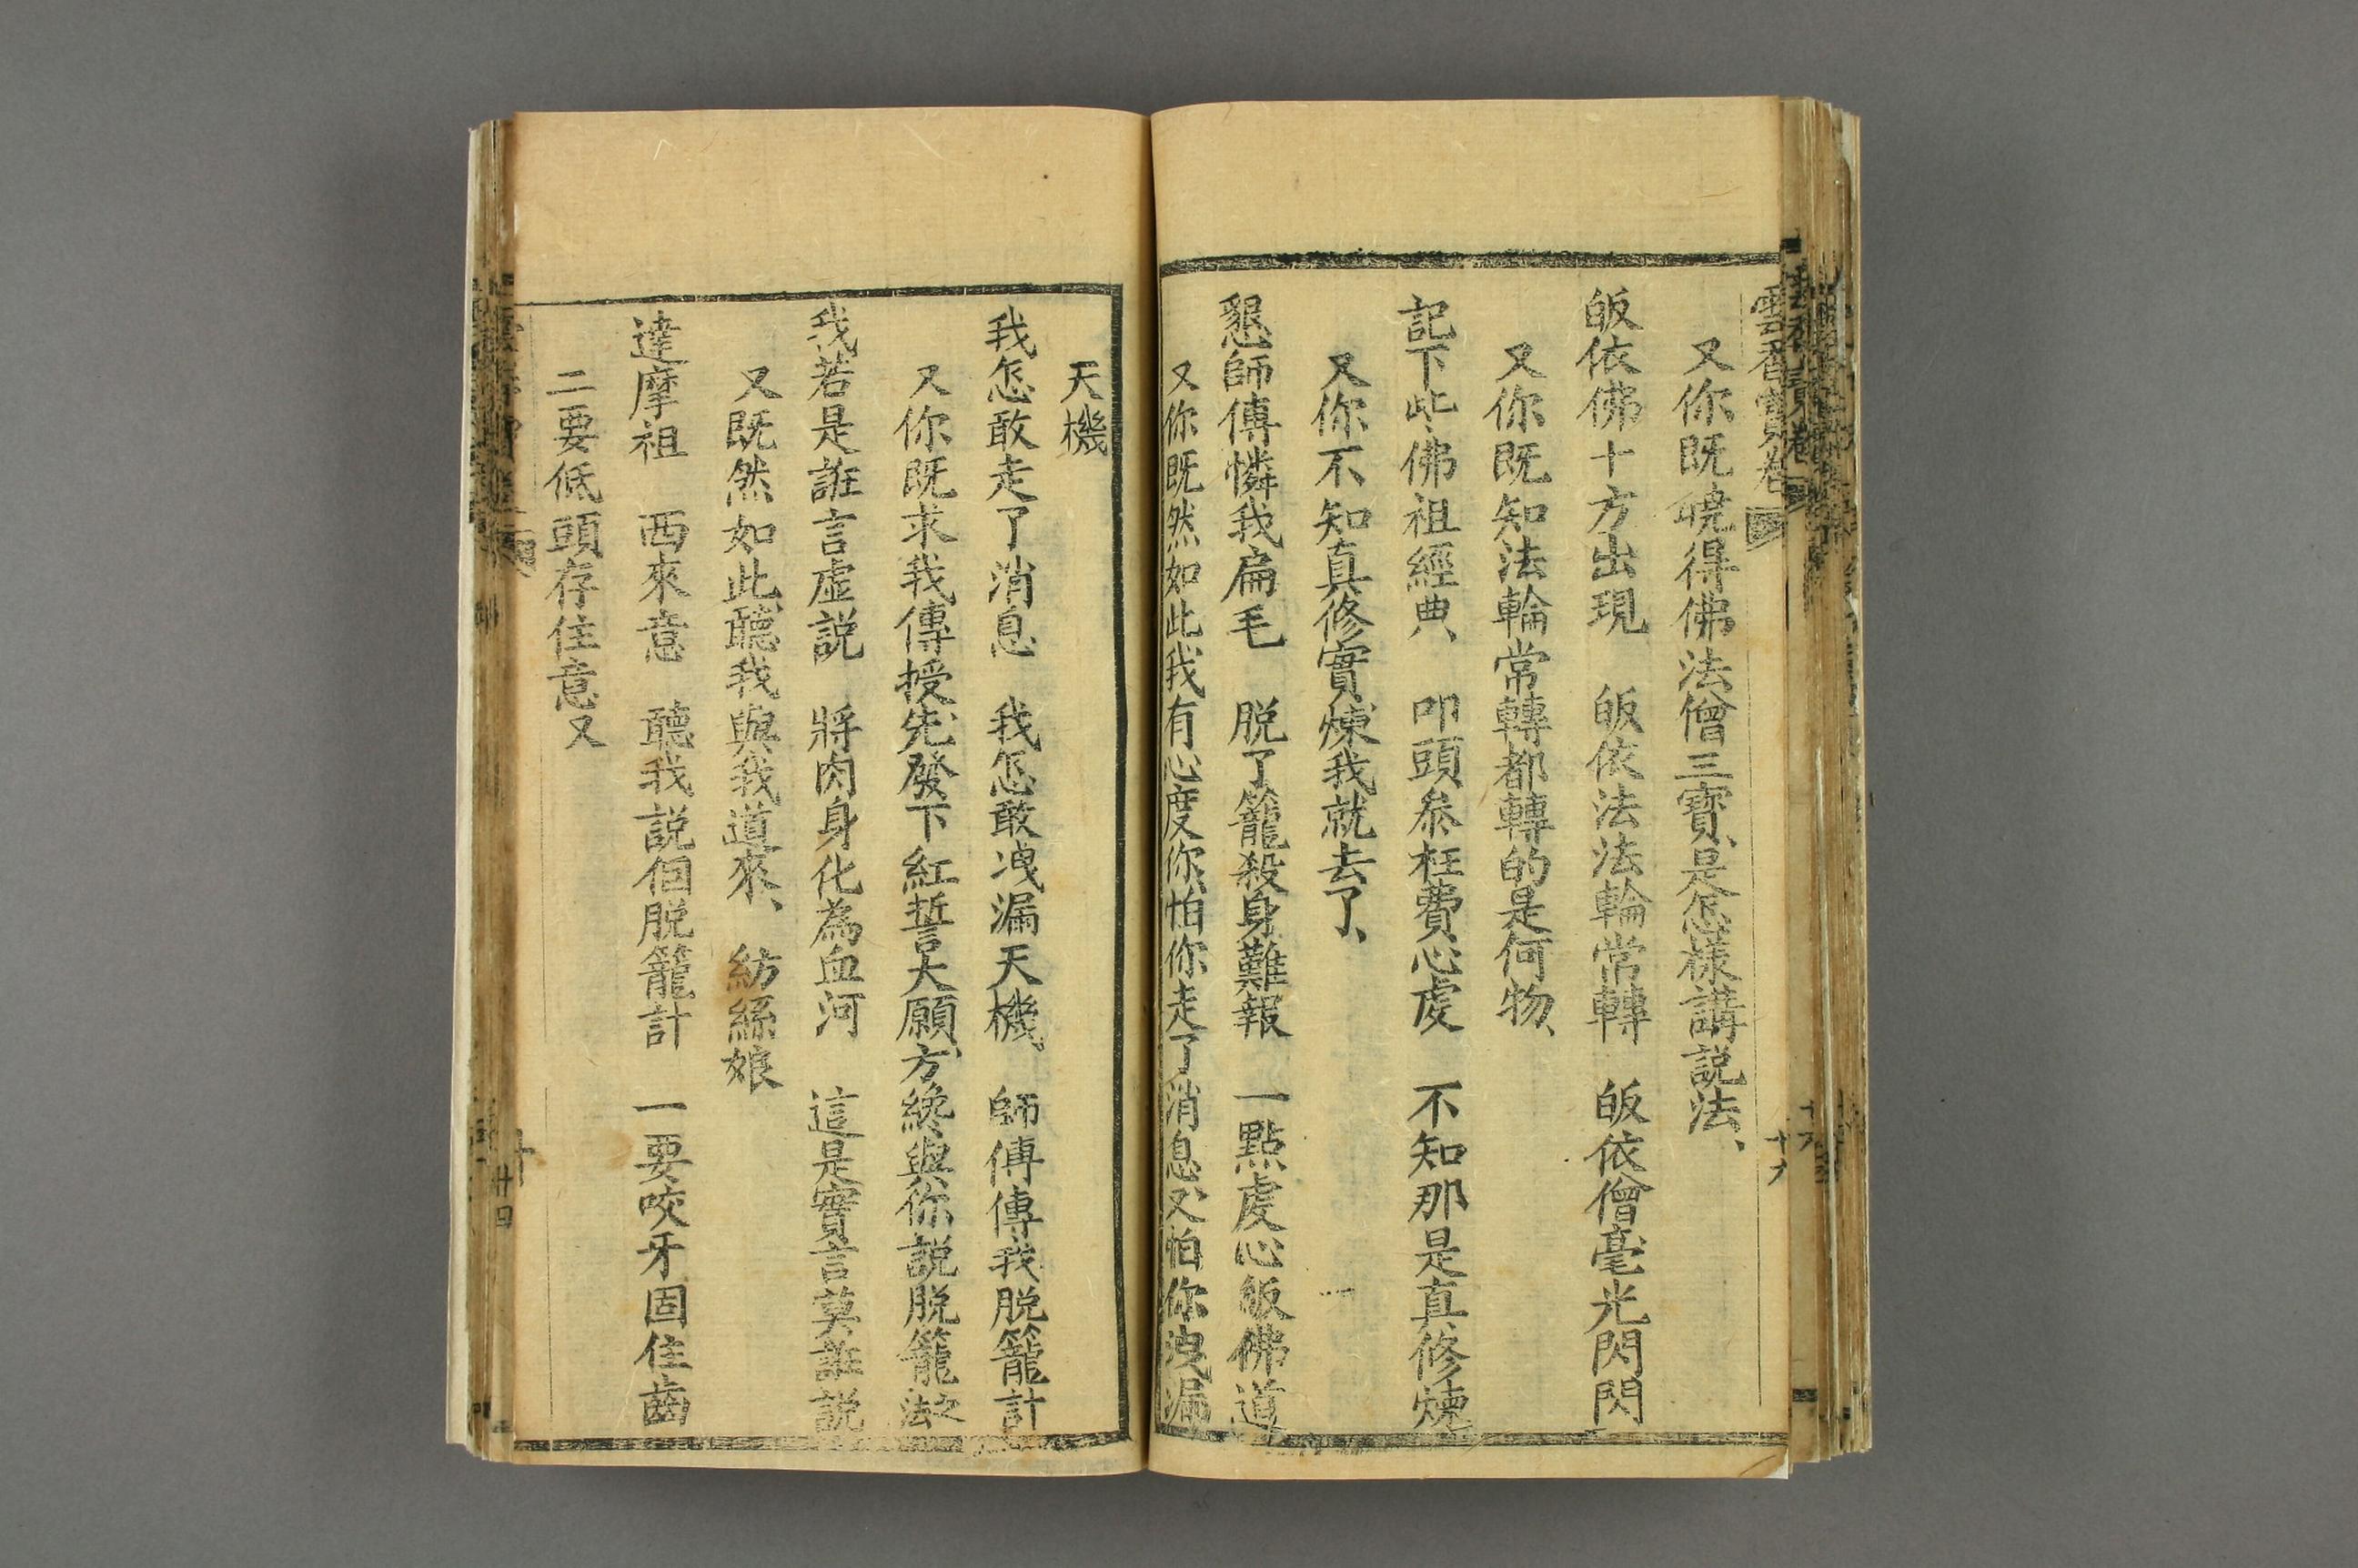 雲香寶卷
又你既曉得佛法僧三寶、是怎樣講說法、
皈依佛十方出現　皈依法法輪常轉　皈依僧毫光閃閃
又你既知法輪常轉都轉的是何物、
記下些佛祖經典、　叩頭叅枉費心䖏　不知那是真修煉
又你不知真修實煉我就去了、
懇師傅憐我扁毛　脱了籠殺身難報　一點虔心皈佛道
又你既然如此我有心度你怕你走了消息又怕你洩漏
天機
我怎敢走了消息　我怎敢洩漏天機、　師傅傳我脱籠計
又你既求我傳授先發下紅誓大願方纔與你説脱籠之法
我若是誑言虛説　將肉身化為血河　這是實言莫誑説
又既然如此聽我與我道來、　紡絲娘
達摩祖　西來意　聽我説個脱籠計　一要咬牙固住齒
二要低頭存住意又